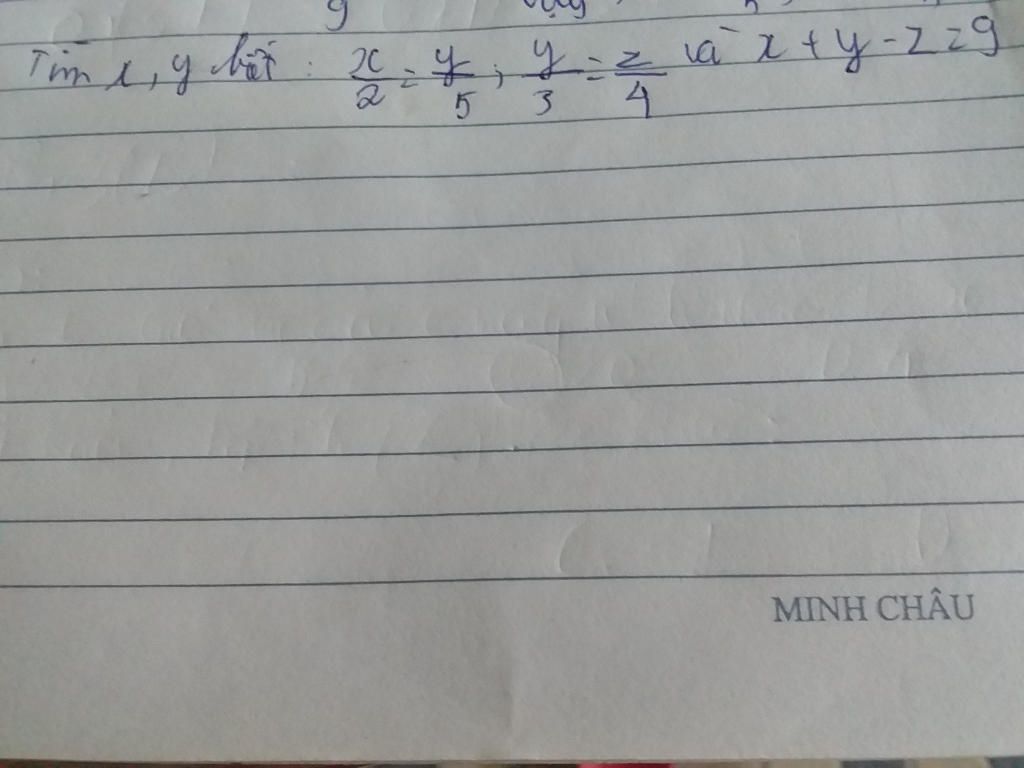 Tìm x, y biết : x/2 = y/5 ; y/3 = z/4 và x + y - z = 9
MINH CHÂU